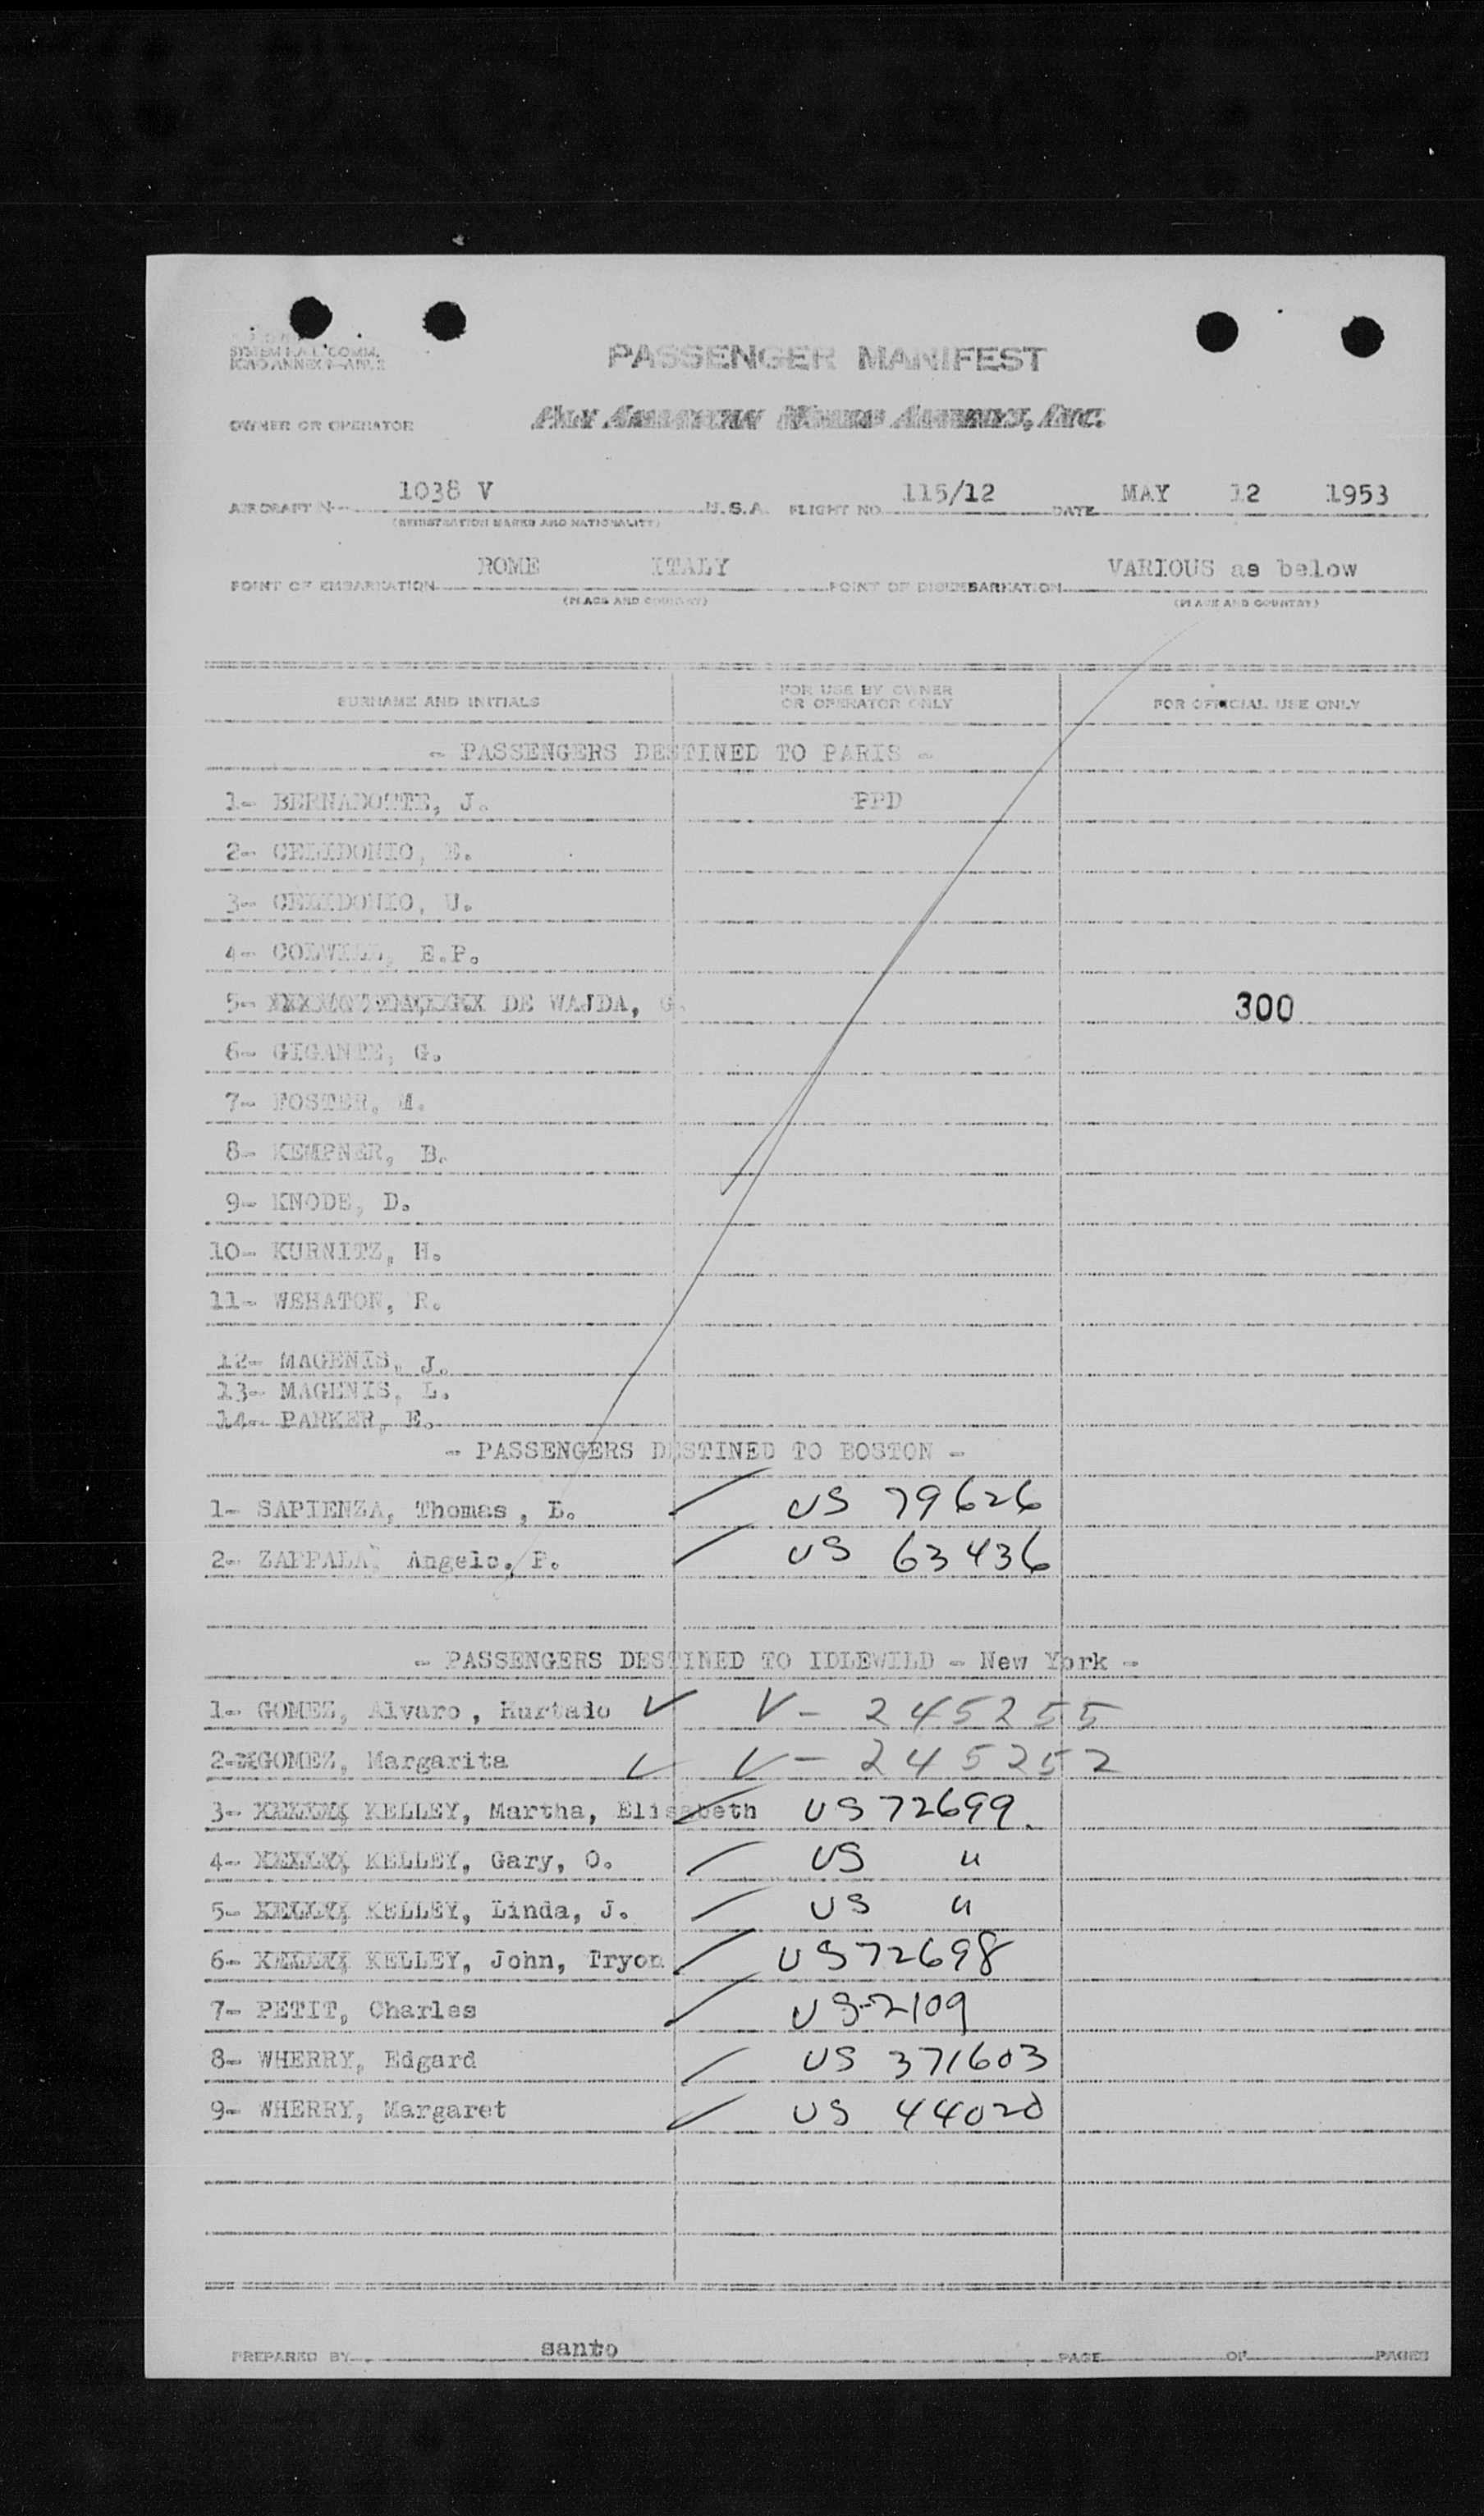 SYSTEM F.A.L. COMM.
ICAO ANNEX 9-APP. 2
PASSENGER MANIFEST
OWNER OR OPERATOR PAN AMERICAN WORLD AIRWAYS, INC.
AIRCRAFT N- 1038 V U.S.A. FLIGHT NO. 115/12 DATE MAY 12 1953
(REGISTRATION MARKS AND NATIONALITY)
POINT OF EMBARKATION ROME ITALY POINT OF DISEMBARKATION VARIOUS as below
(PLACE AND COUNTRY) (PLACE AND COUNTRY)
SURNAME AND INITIALS FOR USE BY OWNER OR OPERATOR ONLY FOR OFFICIAL USE ONLY
- PASSENGERS DESTINED TO PARIS -
1- BERNADOTTE, J. PPD
2- CELIDONIO, E.
3- CELIDONIO, U.
4- COLWELL, E.P.
5- DE WAJDA, G. 300
6- GIGANTE, G.
7- FOSTER, M.
8- KEMPNER, B.
9- KNODE, D.
10- KURNITZ, H.
11- WEHATON, R.
12- MAGENIS, J.
13- MAGENIS, L.
14- PARKER, E.
- PASSENGERS DESTINED TO BOSTON -
1- SAPIENZA, Thomas, B. US 79626
2- ZAPPALA, Angelo, P. US 63436
- PASSENGERS DESTINED TO IDLEWILD - New York -
1- GOMEZ, Alvaro, Hurtado ✓ V - 245255
2- GOMEZ, Margarita ✓ V - 245252
3- KELLEY, Martha, Elisabeth US 72699
4- KELLEY, Gary, O. US "
5- KELLEY, Linda, J. US "
6- KELLEY, John, Tryon US 72698
7- PETIT, Charles US-2109
8- WHERRY, Edgard US 371603
9- WHERRY, Margaret US 44020
PREPARED BY santo PAGE OF PAGES